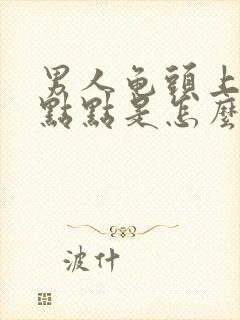 男人龟頭上
點點是怎麼
波什